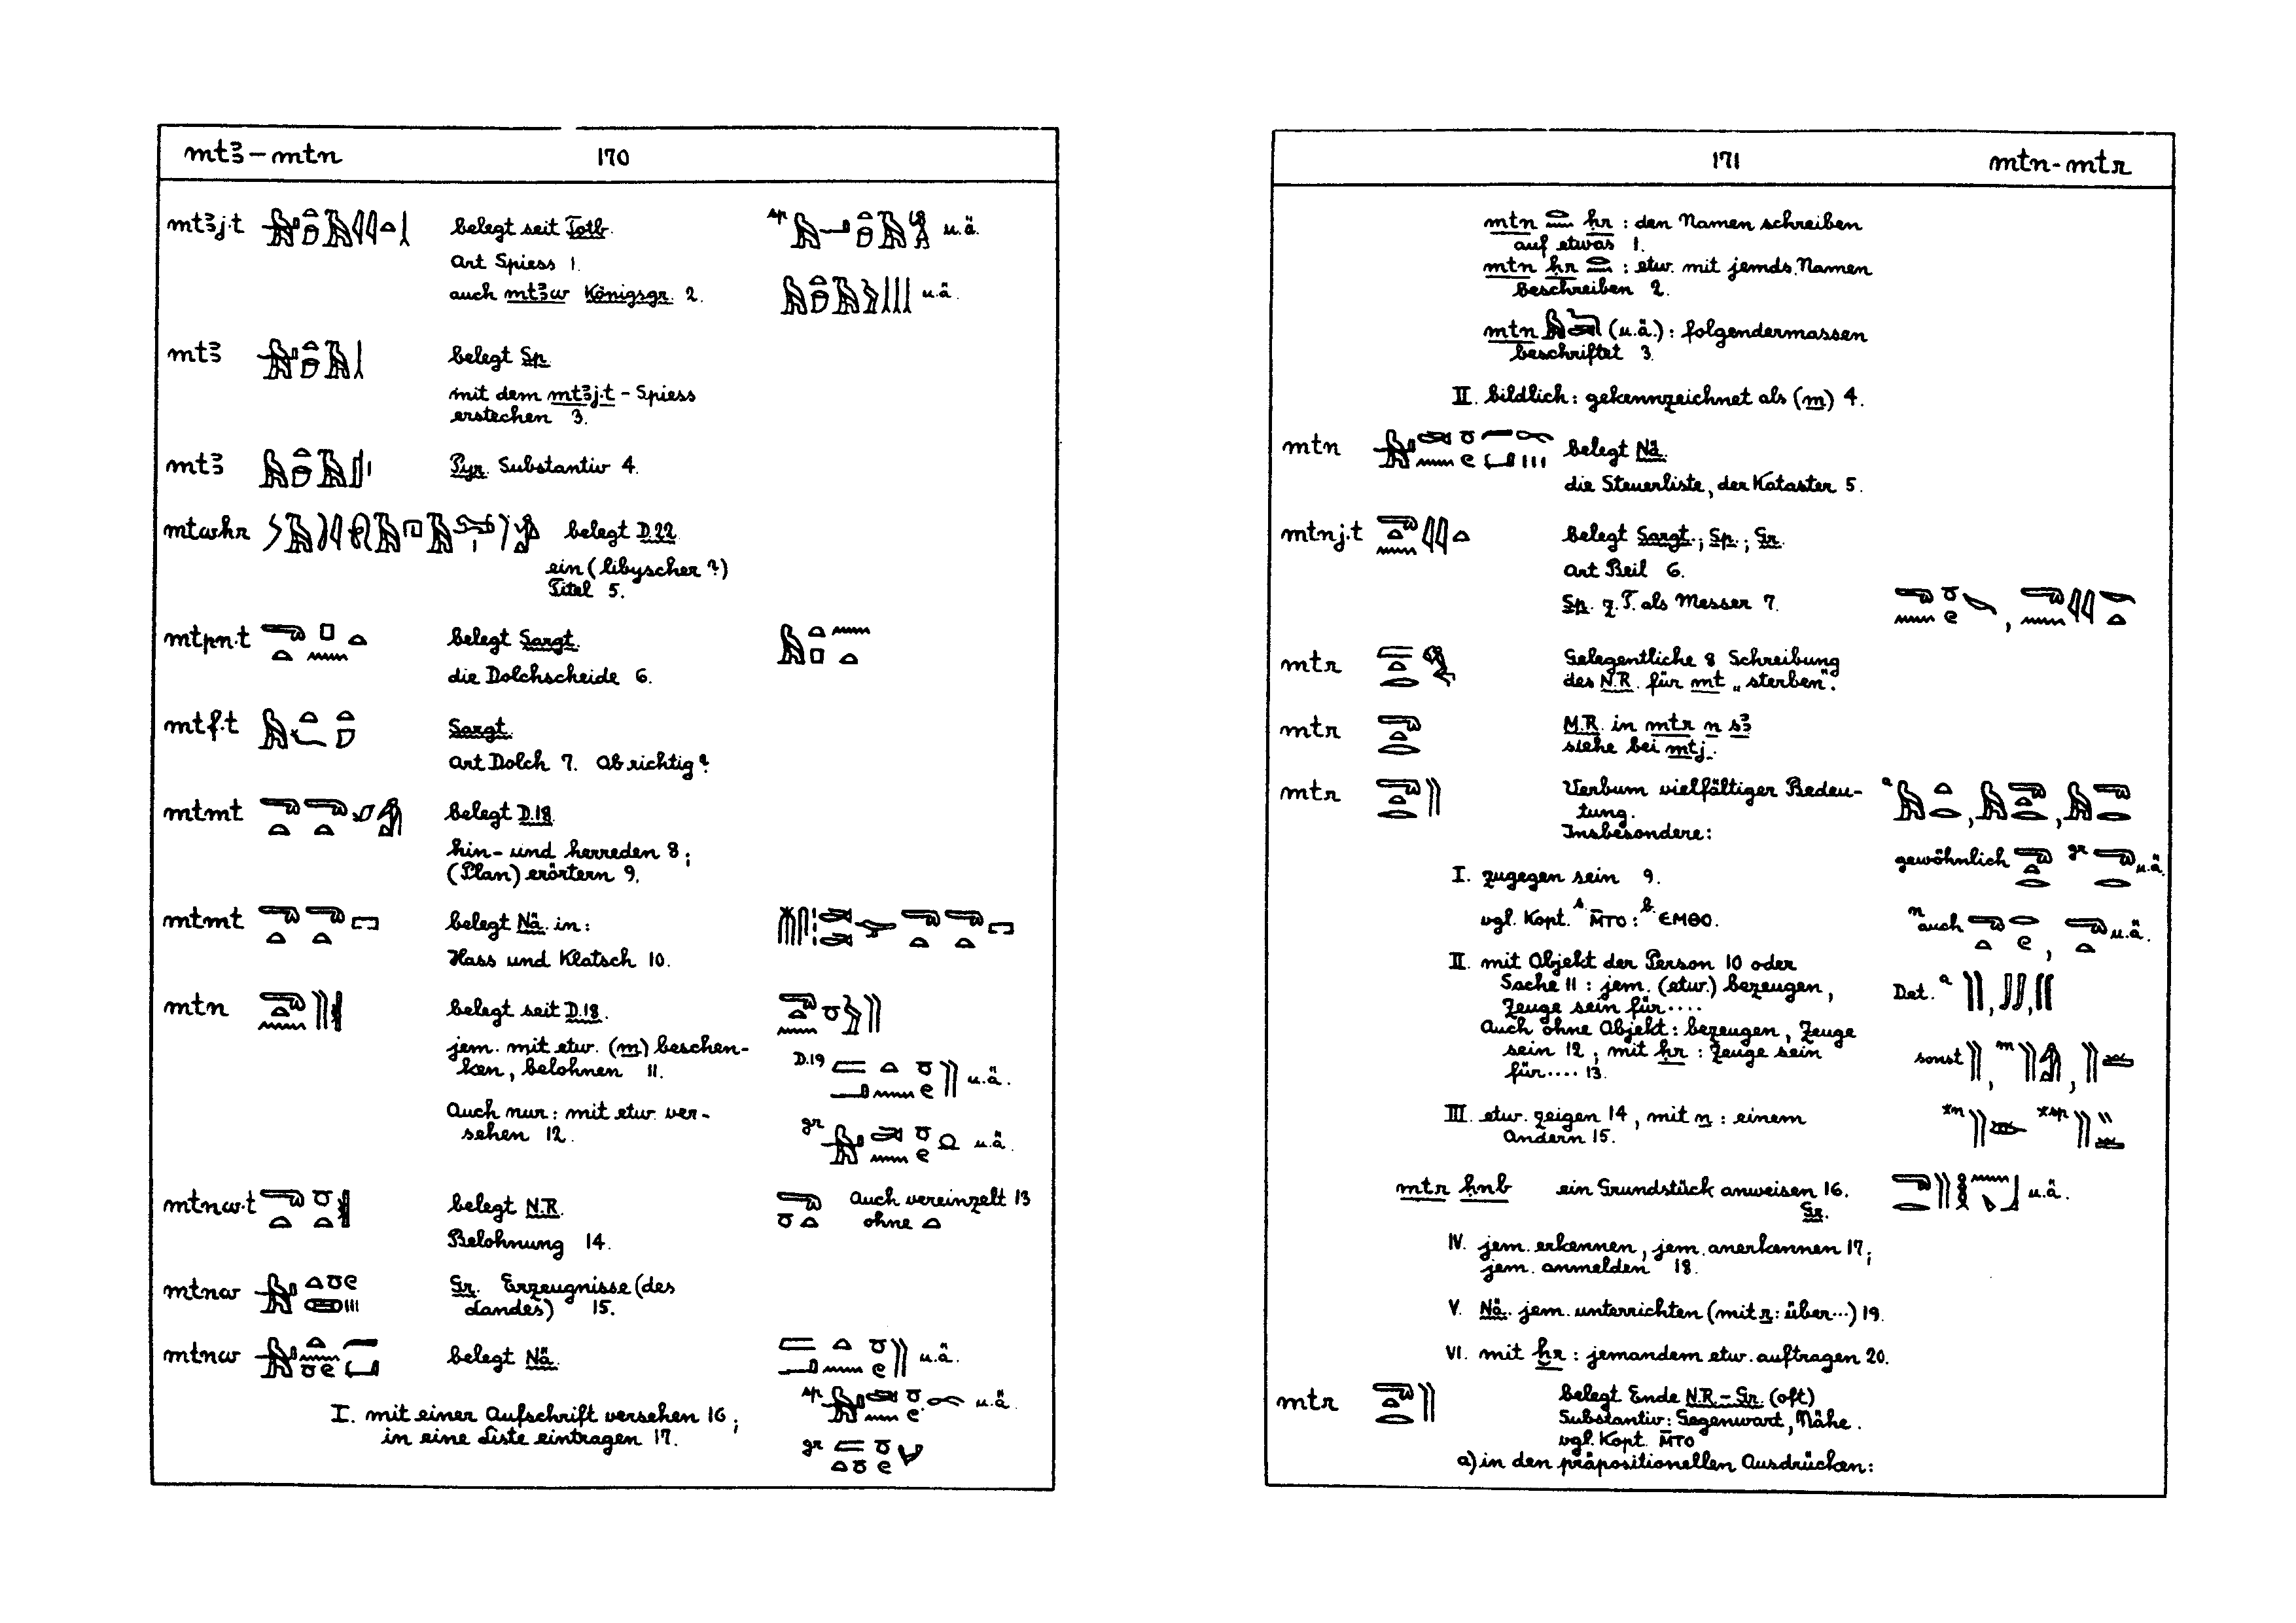 mtꜣ – mtn 170
mtꜣj.t belegt seit Totb. u.ä.
Art Spiess 1.
auch mtꜣw Königsgr. 2. u.ä.
mtꜣ belegt Sp.
mit dem mtꜣj.t – Spiess
erstechen 3.
mtꜣ Pyr. Substantiv 4.
mtwhr belegt D.22
ein (libyscher?)
Titel 5.
mtpn.t belegt Sargt.
die Dolchscheide 6.
mtf.t Sargt.
Art Dolch 7. Ob richtig?
mtmt belegt D.18.
hin- und herreden 8;
(Plan) erörtern 9.
mtmt belegt Nä. in:
Hass und Klatsch 10.
mtn belegt seit D.18.
jem. mit etw. (m) beschen-
ken, belohnen 11. D.19 u.ä.
Auch nur: mit etw. ver-
sehen 12. gr u.ä.
mtnw.t belegt N.R. Auch vereinzelt 13
ohne
Belohnung 14.
mtnw Gr. Erzeugnisse (des
Landes) 15.
mtnw belegt Nä. u.ä.
sp u.ä.
I. mit einer Aufschrift versehen 16;
in eine Liste eintragen 17. gr
171 mtn - mtr
mtn ḥr : den Namen schreiben
auf etwas 1.
mtn ḥr : etw. mit jemds. Namen
beschreiben 2.
mtn (u.ä.) : folgendermassen
beschriftet 3.
II. bildlich: gekennzeichnet als (m) 4.
mtn belegt Nä.
die Steuerliste, der Kataster 5.
mtnj.t belegt Sargt.; Sp.; Gr.
Art Beil 6.
Sp. z.T. als Messer 7.
mtr Gelegentliche 8 Schreibung
des N.R. für mt „sterben".
mtr M.R. in mtr n sꜣ
siehe bei mtj.
mtr Verbum vielfältiger Bedeu-
tung.
Insbesondere:
gewöhnlich gr u.ä.
I. zugegen sein 9.
vgl. Kopt. s. M̄TO : b. ЄMΘO. n auch u.ä.
II. mit Objekt der Person 10 oder
Sache 11 : jem. (etw.) bezeugen, Det. a
Zeuge sein für ····
Auch ohne Objekt: bezeugen, Zeuge
sein 12, mit ḥr : Zeuge sein sonst m
für ···· 13.
III. etw. zeigen 14, mit n : einem *n *sp
Andern 15.
mtr ḥnb ein Grundstück anweisen 16. u.ä.
Gr.
IV. jem. erkennen, jem. anerkennen 17;
jem. anmelden 18.
V. Nä. jem. unterrichten (mit r : über···) 19.
VI. mit ḫr : jemandem etw. auftragen 20.
mtr belegt Ende N.R. – Gr. (oft)
Substantiv: Gegenwart, Nähe.
vgl. Kopt. M̄TO
a) in den präpositionellen Ausdrücken: